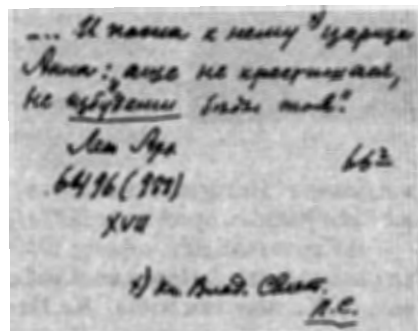 ... И посла к нему х) царица
Анна: „аще не крестишися,
не избудеши
Лет Арх
6496 (989)
XVII
662
х) кн. Влад. Свят.
А.С.